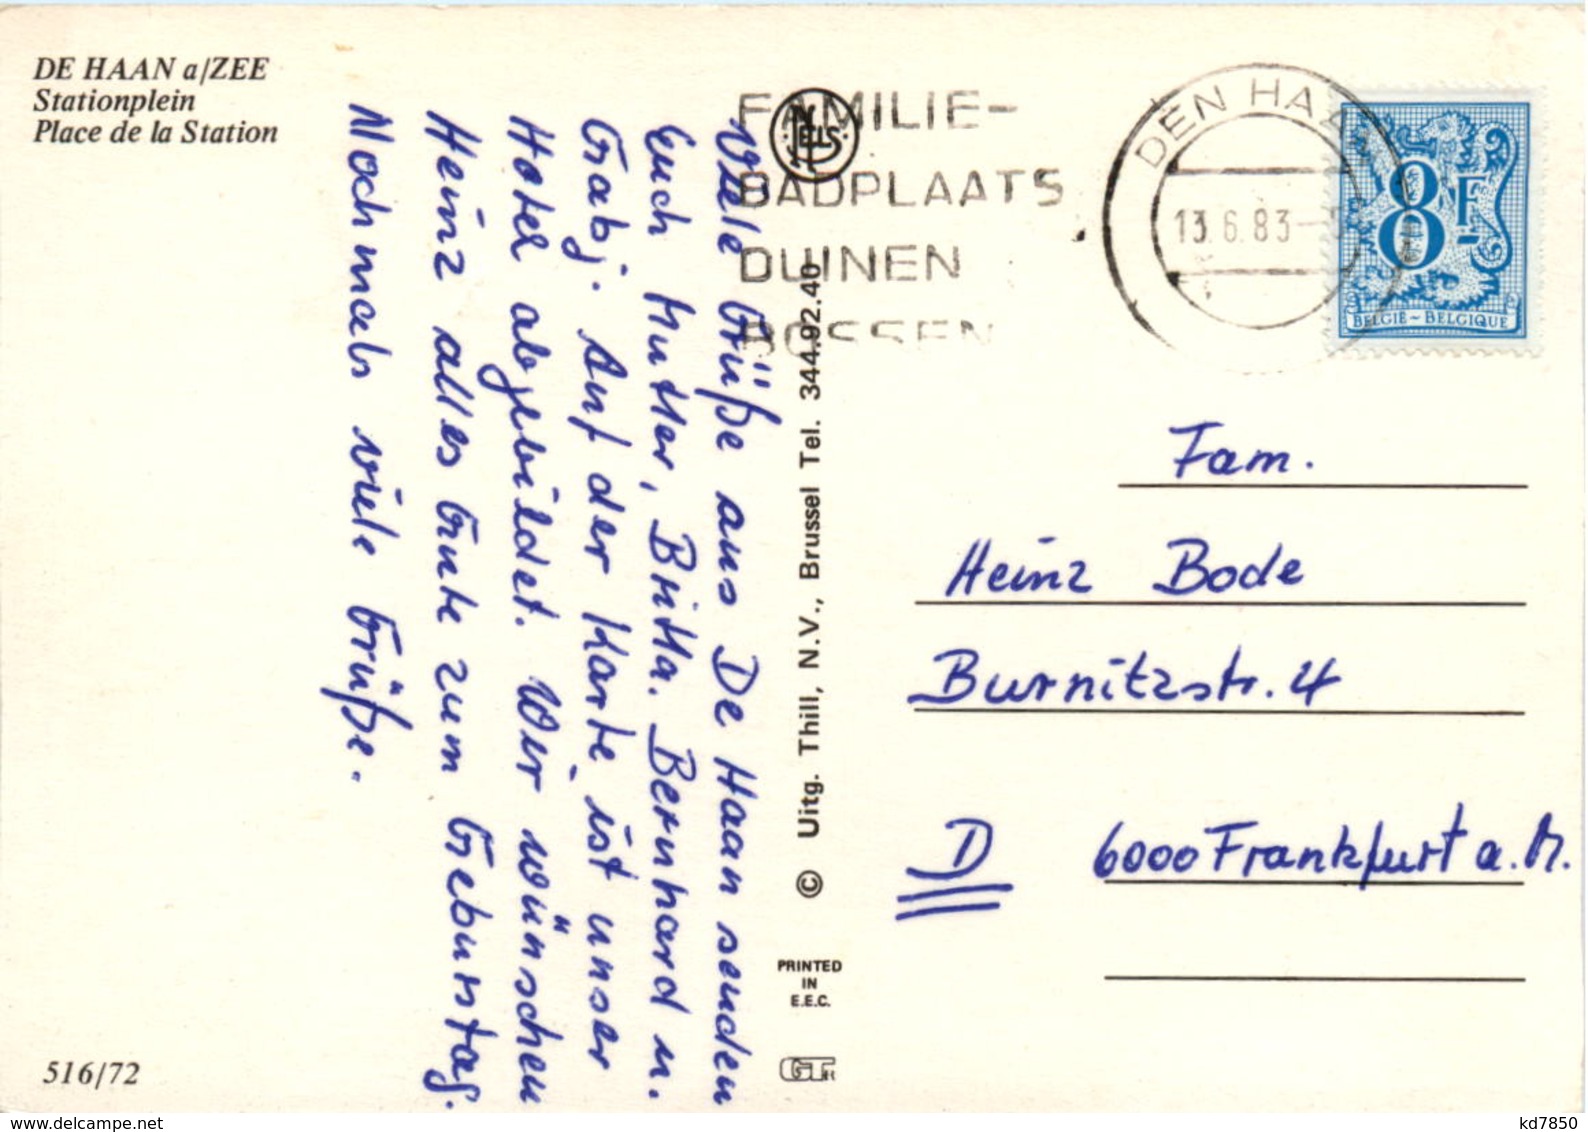 DE HAAN a/ZEE
Stationplein
Place de la Station
FAMILIE-
BADPLAATS
DUINEN
BOSSEN
NELS
DEN HAAN
13.6.83
8F
BELGIË~BELGIQUE
Viele Grüße aus De Haan senden
Euch Mutter, Britta. Bernhard u.
Gabj. Auf der Karte ist unser
Hotel abgebildet. Wir wünschen
Heinz alles Gute zum Geburtstag.
Nochmals viele Grüße.
© Uitg. Thill, N.V., Brussel Tel. 344.92.40
PRINTED
IN
E.E.C.
Fam.
Heinz Bode
Burnitzstr. 4
D 6000 Frankfurt a. M.
516/72
www.delcampe.net
kd7850